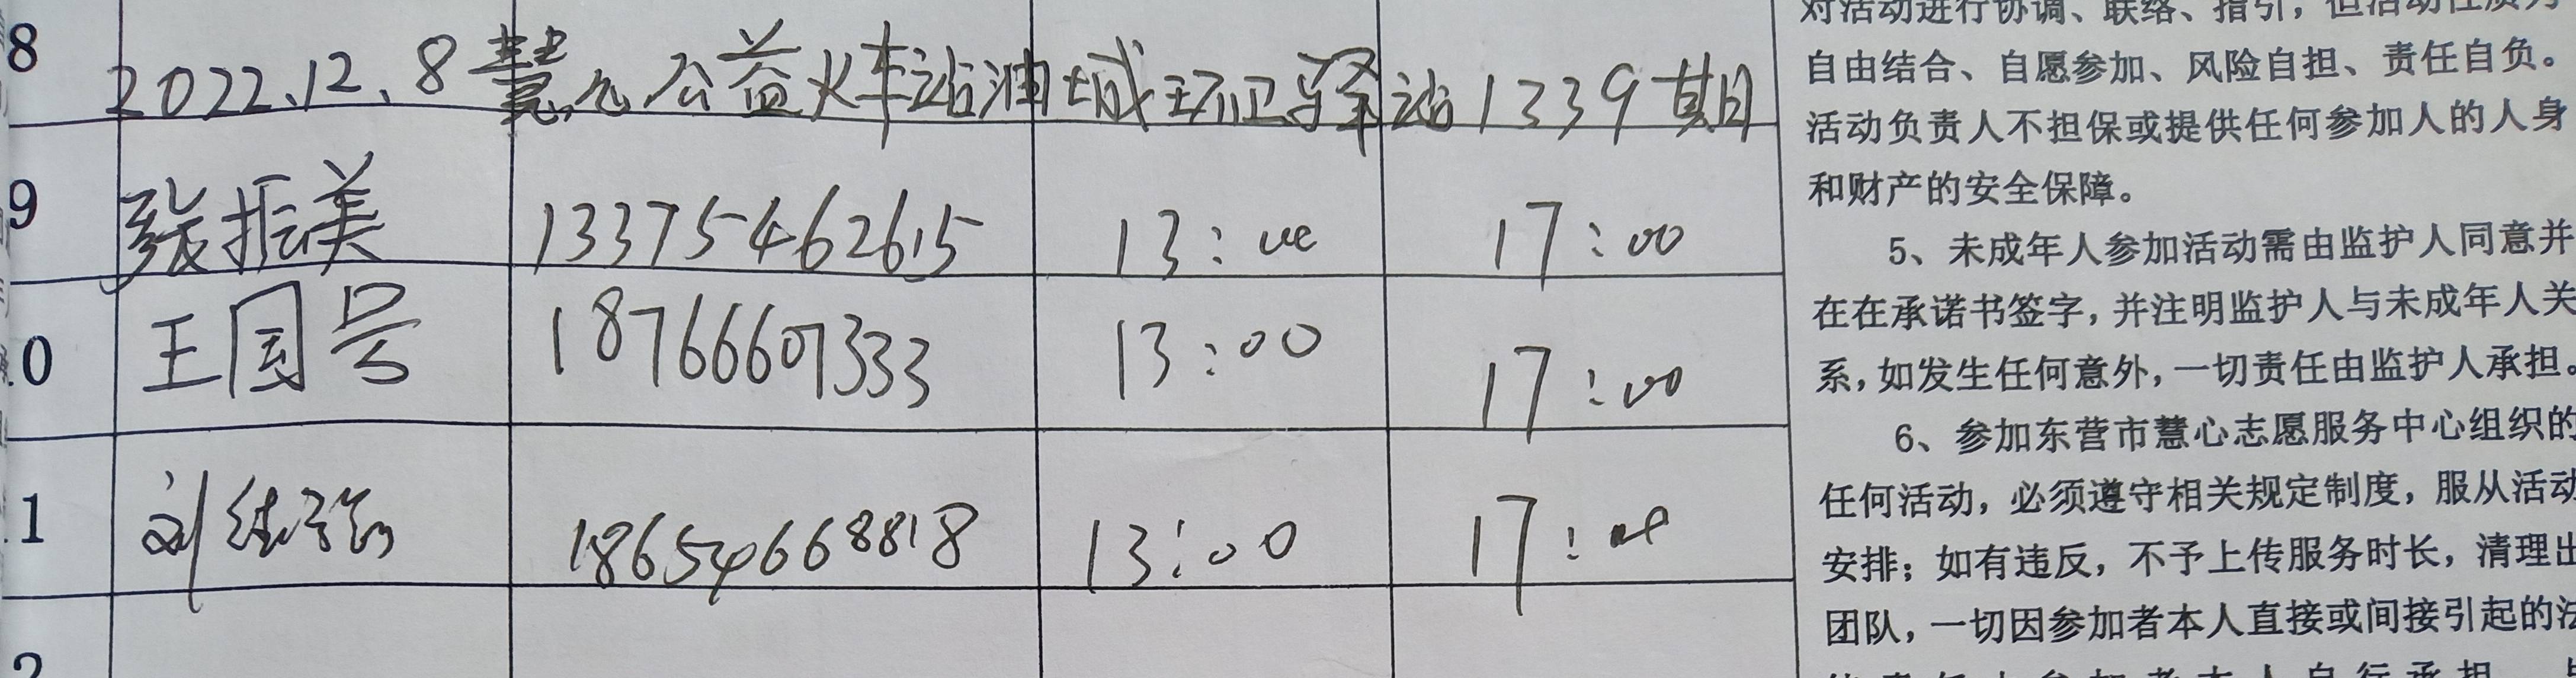 8 2022.12.8慧心公益火车站油城环卫驿站1339期
9 张振美 13375462615 13:00 17:00
0 王国号 18766607333 13:00 17:00
1 刘 186540668818 13:00 17:00
2
对活动进行协调、联络、指引，但活动性质为
自由结合、自愿参加、风险自担、责任自负。
活动负责人不担保或提供任何参加人的人身
和财产的安全保障。
5、未成年人参加活动需由监护人同意并
在在承诺书签字，并注明监护人与未成年人关
系，如发生任何意外，一切责任由监护人承担。
6、参加东营市慧心志愿服务中心组织的
任何活动，必须遵守相关规定制度，服从活动
安排；如有违反，不予上传服务时长，清理出
团队，一切因参加者本人直接或间接引起的法